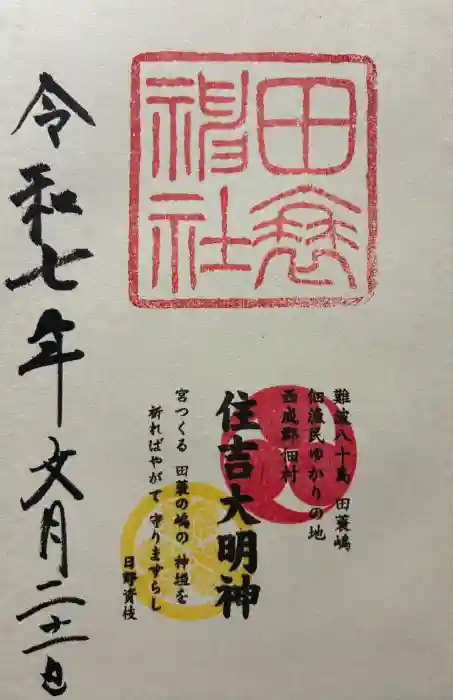 田蓑
神社
難波八十島 田蓑嶋
佃漁民ゆかりの地
西成郡佃村
住吉大明神
宮つくる 田蓑の嶋の 神垣を
祈ればやがて 守りますらし
日野資枝
令和七年文月二十一日